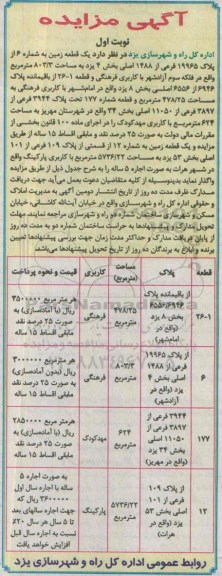 آگهی مزایده
نوبت اول
اداره کل راه و شهرسازی یزد در نظر دارد یک قطعه زمین به شماره ۶ از
پلاک ۱۹۹۶۵ فرعی از ۱۴۸۸ اصلی بخش ۴ یزد به مساحت ۸۰۲/۳ مترمربع
واقع در فلکه سوم آزادشهر با کاربری فرهنگی و قطعه ۱-۲۶ از باقیمانده پلاک
۶۹۴۶ از ۶۵۵۶ اصلی بخش ۸ یزد واقع در امام‌شهر با کاربری فرهنگی به
مساحت ۴۷۸/۲۵ مترمربع و قطعه شماره ۱۷۷ تحت پلاک ۳۹۴۴ فرعی از
۳۸۹۷ فرعی از ۱۱۰۵۰ اصلی بخش ۳۴ یزد واقع در شهرستان مهریز به مساحت
۶۲۴ مترمربع با کاربری مهدکودک را در اجرای ماده ۱۰۰ قانون بخشی از
مقررات مالی دولت به صورت ۲۵ درصد نقد و مابقی اقساط ۱۵ ساله از طریق
مزایده و یک قطعه زمین به شماره ۱۲ از قسمتی از پلاک ۱۰۹ فرعی از ۱۰۱
اصلی بخش ۵۳ یزد به مساحت ۵۷۳۶/۲۲ مترمربع با کاربری پارکینگ واقع
در شهر هرات به صورت اجاره ۵ ساله را به شرح جدول ذیل از طریق مزایده
واگذار نماید بدینوسیله از کلیه متقاضیان دعوت بعمل می‌آید جهت دریافت
مدارک ظرف مدت ده روز از تاریخ انتشار دومین آگهی به مدیریت املاک
و حقوقی اداره کل راه و شهرسازی واقع در خیابان آیت‌الله کاشانی، خیابان
مسکن و شهرسازی ساختمان شماره دو راه و شهرسازی مراجعه نمایند. مهلت
تحویل مدارک و پیشنهادها به حراست ساختمان شماره دو به مدت ده روز
از پایان دریافت مدارک و حداکثر مدت زمان جهت بررسی پیشنهادها تعیین
برنده و ابلاغ به برندگان ده روز از تاریخ تحویل پیشنهادها می‌باشد.
قطعه پلاک مساحت (مترمربع) کاربری قیمت و نحوه پرداخت
۲۶-۱ از باقیمانده پلاک ۶۵۵۶/۶۹۴۶ بخش ۸ یزد (واقع در امام‌شهر) ۴۷۸/۲۵ فرهنگی هر مترمربع ۳۵۰۰۰۰۰ ریال (با آماده‌سازی) به صورت ۲۵ درصد نقد مابقی اقساط ۱۵ ساله
۶ پلاک ۱۹۹۶۵ فرعی از ۱۴۸۸ اصلی بخش ۴ یزد (واقع در آزادشهر) ۸۰۲/۳ فرهنگی هر مترمربع ۳۰۰۰۰۰۰ ریال (بدون آماده‌سازی) به صورت ۲۵ درصد نقد مابقی اقساط ۱۵ ساله
۱۷۷ ۳۹۴۴ فرعی از ۳۸۹۷ فرعی از ۱۱۰۵۰ اصلی بخش ۳۴ یزد (واقع در مهریز) ۶۲۴ مهدکودک هر مترمربع ۲۸۵۰۰۰۰ ریال (با آماده‌سازی) به صورت ۲۵ درصد نقد مابقی اقساط ۱۵ ساله
۱۲ از پلاک ۱۰۹ فرعی از ۱۰۱ اصلی بخش ۵۳ یزد (واقع در هرات) ۵۷۳۶/۲۲ پارکینگ به صورت اجاره ۵ ساله با اجاره سال اول ۳۶۰۰۰۰۰۰ ریال که جهت اجاره سالهای بعد تا ۵ سال هر سال ۲۰٪ نسبت به اجاره سال قبل افزایش خواهد یافت
روابط عمومی اداره کل راه و شهرسازی یزد